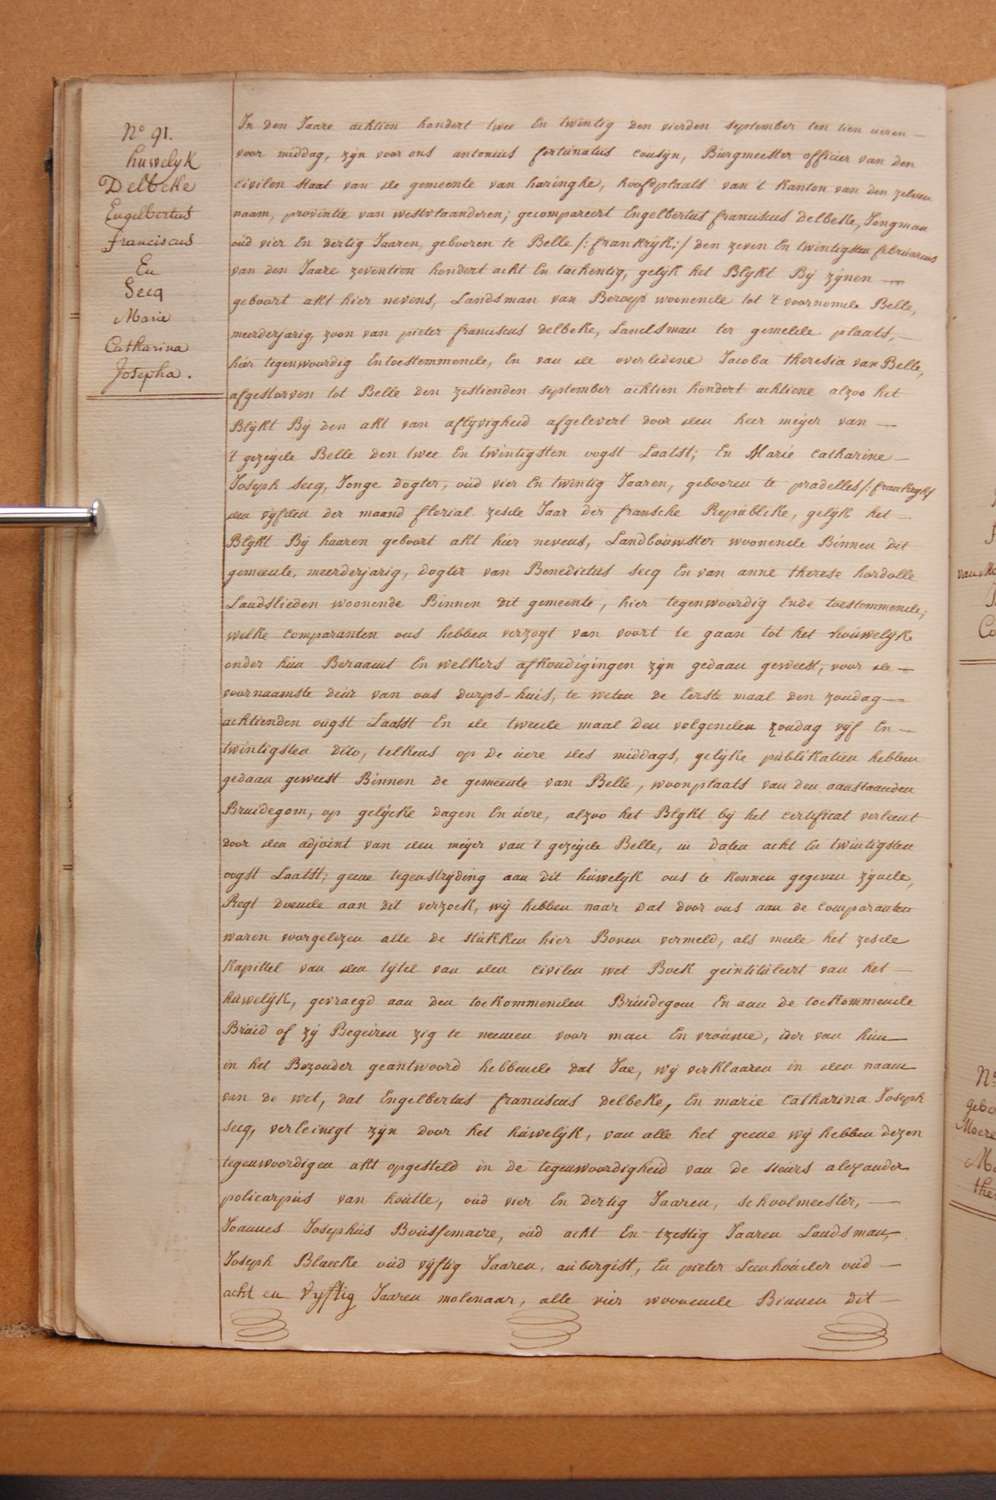 N° 91.
huwelyk
Delbeke
Engelbertus
Franciscus
En
Secq
Marie
Catharina
Josepha.
In den Jaare achtien hondert twee En twintig den vierden september ten tien ueren
voor middag, zÿn voor ons antonius fortunatus cousÿn, Burgmeester officier van den
civilen staat van de gemeente van haringhe, hoofdplaats van 't kanton van den zelven
naam, provintie van westvlaanderen; gecompareert Engelbertus franciscus delbeke, Jongman
oud vier En dertig Jaaren, gebooren te Belle /: frankrÿk :/ den zeven En twintigsten februarius
van den Jaare zeventien hondert acht En tachentig, gelÿk het Blÿkt Bÿ zÿnen
geboort akt hier nevens, Landsman van Beroep woonende tot 't voornomde Belle,
meerderjarig, zoon van pieter franciscus delbeke, Landsman ter gemelde plaats,
hier tegenwoordig En toestemmende, En van de overledene Jacoba theresia van Belle,
afgestorven tot Belle den zestienden september achtien hondert achtiene alzoo het
Blÿkt Bÿ den akt van aflÿvigheid afgelevert door den heer meÿer van
't gezegde Belle den twee En twintigsten oogst Laatst; En Marie catharine
Joseph secq, Jonge dogter, oud vier En twintig Jaaren, gebooren te pradelles /: frankryk :/
den vÿfden der maand florial zesde Jaar der fransche Republieke, gelÿk het
Blÿkt Bÿ haaren geboort akt hier nevens, Landbouwster woonende Binnen dit
gemeente, meerderjarig, dogter van Benedictus secq En van anne therese hordolle
Landslieden woonende Binnen dit gemeente, hier tegenwoordig Ende toestemmende;
welke comparanten ons hebben verzogt van voort te gaan tot het houwelÿk
onder hun Beraamt En welkers afkondigingen zÿn gedaan geweest, voor de
voornaamste deur van ons dorps-huis, te weten de Eerste maal den zondag
achtienden ougst Laatst En de tweede maal den volgenden zondag vÿf En
twintigsten dito, telkens op de uere des middags, gelÿke publikatien hebben
gedaan geweest Binnen de gemeente van Belle, woonplaats van den aanstaanden
Bruidegom, op gelÿcke dagen En uere, alzoo het Blÿkt bÿ het certificat verleent
door den adjoint van den meÿer van 't gezeÿde Belle, in daten acht En twintigsten
oogst Laatst; geene tegenstrÿding aan dit huwelÿk ons te kennen gegeven zÿnde,
Regt doende aan dit verzoek, wÿ hebben naar dat door ons aan de comparanten
waren voorgelezen alle de stukken hier Boven vermeld, als mede het zesde
kapittel van den tÿtel van den civilen wet Boek geintituleert van het
huwelÿk, gevraegd aan den toekommenden Bruidegom En aan de toekommende
Bruid of zÿ Begeiren zig te neemen voor man En vrouwe, ider van hun
in het Bezonder geantwoord hebbende dat Jae, wÿ verklaaren in den naam
van de wet, dat Engelbertus franciscus delbeke, En marie catharina Joseph
secq, vereinegt zÿn door het huwelÿk, van alle het geene wÿ hebben dezen
tegenwoordigen akt opgesteld in de tegenwoordigheid van de sieurs alexander
policarpus van houtte, oud vier En dertig Jaaren, schoolmeester,
Joannes Josephus Boussemaere, oud acht En tzestig Jaaren Landsman,
Joseph Blaecke oud vÿftig Jaaren, aubergist, En pieter Leenhouder oud
acht en Vyftig Jaaren molenaar, alle vier woonende Binnen dit